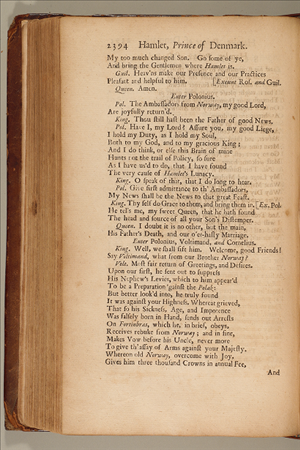 2394 Hamlet, Prince of Denmark.
My too much changed Son. Go some of ye,
And bring the Gentlemen where Hamlet is.
Guil. Heav'ns make our Presence and our Practices
Pleasant and helpful to him. [Exeunt Ros. and Guil.
Queen. Amen.
Enter Polonius.
Pol. The Ambassadors from Norway, my good Lord,
Are joyfully return'd.
King. Thou still hast been the Father of good News.
Pol. Have I, my Lord? Assure you, my good Liege,
I hold my Duty, as I hold my Soul,
Both to my God, and to my gracious King:
And I do think, or else this Brain of mine
Hunts not the trail of Policy, so sure
As I have us'd to do, that I have found
The very cause of Hamlet's Lunacy.
King. O speak of that, that I do long to hear.
Pol. Give first admittance to th' Ambassadors,
My News shall be the News to that great Feast.
King. Thy self do Grace to them, and bring them in. [Ex. Pol.
He tells me, my sweet Queen, that he hath found
The head and source of all your Son's Distemper.
Queen. I doubt it is no other, but the main,
His Father's Death, and our o'er-hasty Marriage.
Enter Polonius, Voltimand, and Cornelius.
King. Well, we shall sift him. Welcome, good Friends!
Say Voltimand, what from our Brother Norway?
Volt. Most fair return of Greetings, and Desires.
Upon our first, he sent out to suppress
His Nephew's Levies, which to him appear'd
To be a Preparation 'gainst the Polak:
But better look'd into, he truly found
It was against your Highness. Whereat grieved,
That so his Sickness, Age, and Impotence
Was falsely born in Hand, sends out Arrests
On Fortinbras, which he, in brief, obeys,
Receives rebuke from Norway; and in fine,
Makes Vow before his Uncle, never more
To give th' assay of Arms against your Majesty.
Whereon old Norway, overcome with Joy,
Gives him three thousand Crowns in annual Fee,
And